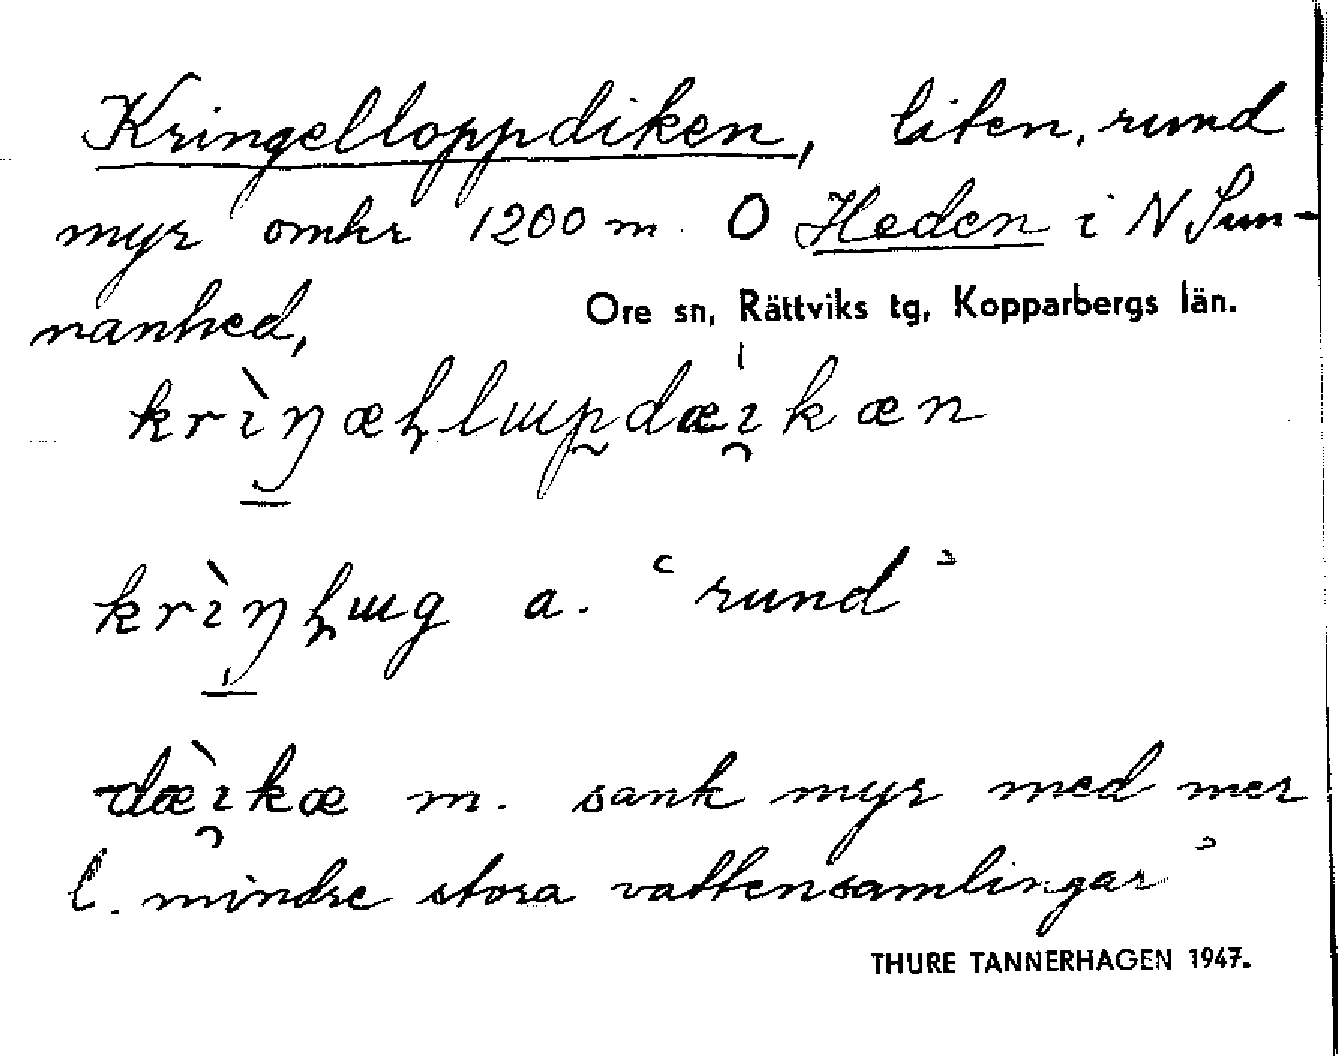 Kringelloppdiken, liten, rund
myr omkr 1200 m. O Heden i N Sun-
nanhed,
Ore sn, Rättviks tg, Kopparbergs län.
a. "rund"
m. sank myr med mer
l. mindre stora vattensamlingar"
THURE TANNERHAGEN 1947.